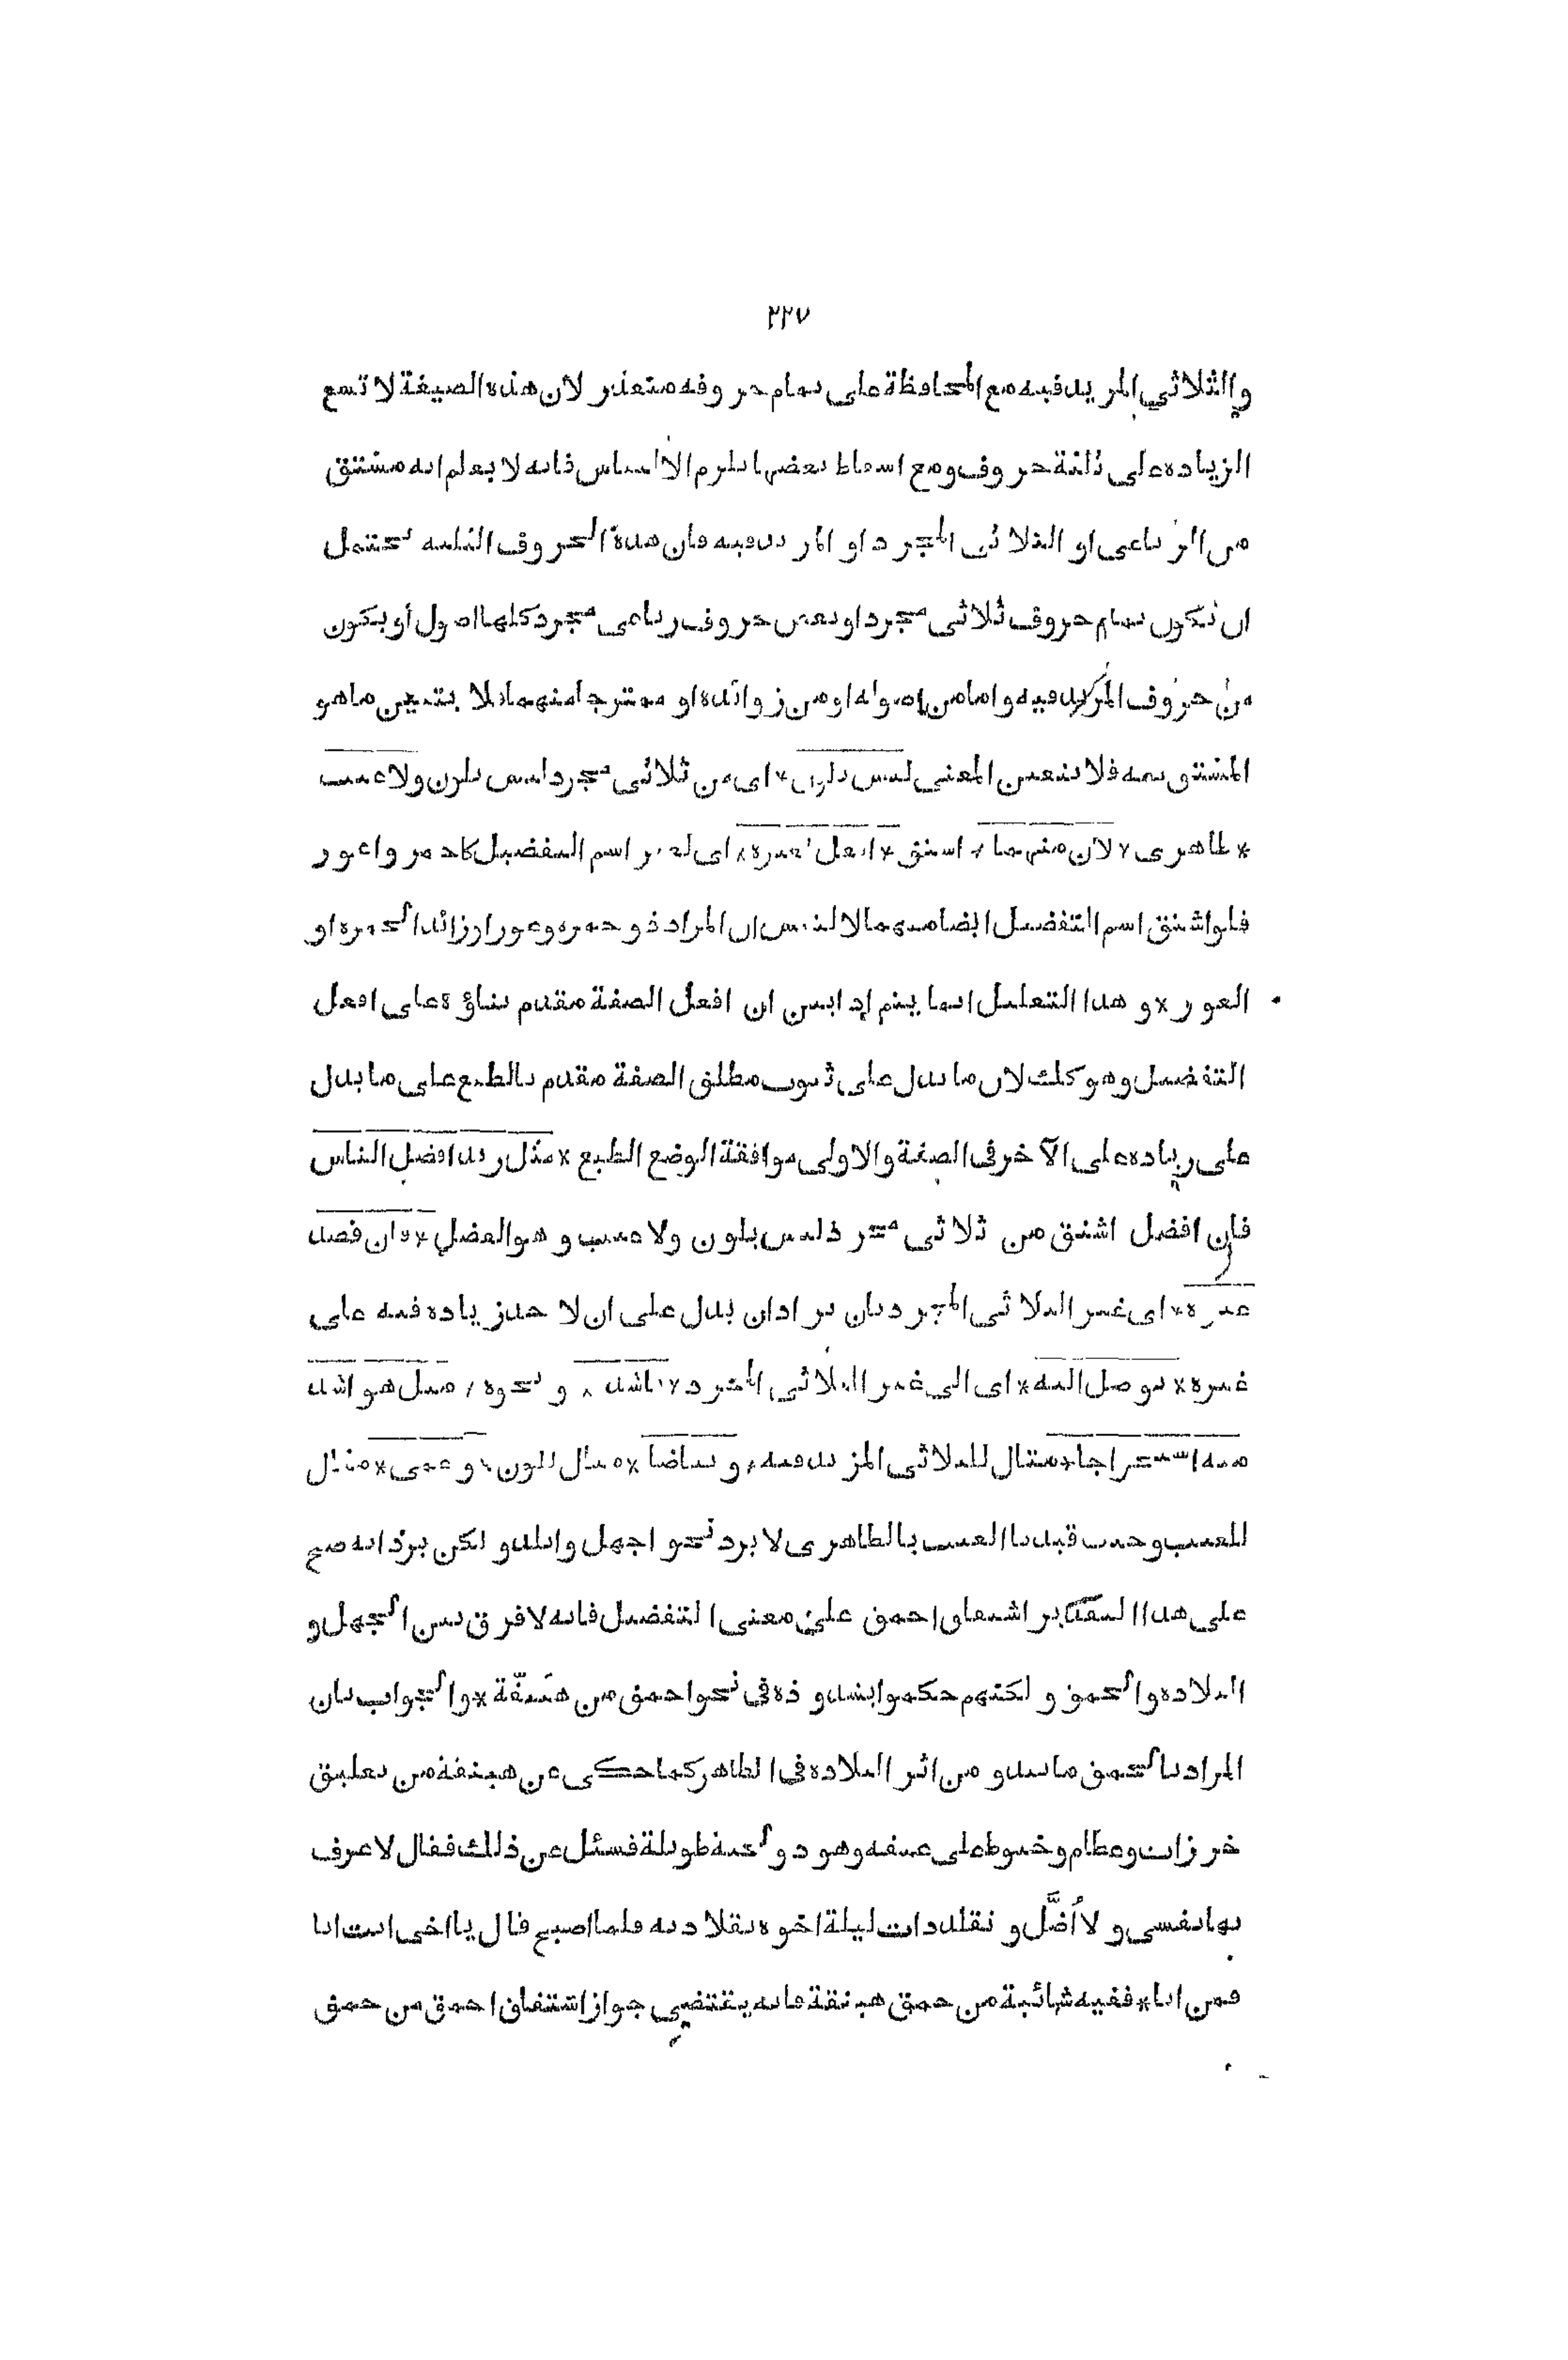 ٢٢٧
والثلاثي المزيد فيه مع المحافظة على تمام حروفه متعذر لان هذه الصيغة لا تسع
الزيادة على ثلثة حروف ومع اسقاط بعضها يلزم الالتباس فانه لا يعلم انه مشتق
من الرباعى او الثلاثى المجرد او المزيد فيه فان هذه الحروف الثلثه تحتمل
ان تكون تمام حروف ثلاثى مجرد او بعض حروف رباعى مجرد كلها اصول أو يكون
من حروف المزيد فيه واما من اصوله او من زوائده او ممتزجا منهما فلا يتعين ما هو
المشتق منه فلا يتعين المعنى ليس بلون * اى من ثلاثى مجرد ليس بلون ولا عيب
* ظاهرى * لان منهما * اشتق * افعل لغيره * اى لغير اسم التفضيل كاحمر واعور
فلو اشتق اسم التفضيل ايضا منهما لالتبس ان المراد ذو حمره وعور او زائد الحمره او
العور * و هذا التعليل انما يتم اذا بين ان افعل الصفة مقدم بناؤه على افعل
التفضيل وهو كذلك لان ما يدل على ثبوت مطلق الصفة مقدم بالطبع على ما يدل
على زيادة على الآخر فى الصفة والاولى موافقة الوضع الطبع * مثل زيد افضل الناس
فان افضل اشتق من ثلاثى مجرد ليس بلون ولا عيب و هو الفضل * وان قصد
غيره * اى غير الثلاثى المجرد بان يراد ان يدل على ان لاحد زيادة فيه على
غيره * توصل اليه * اى الى غير الثلاثى المجرد * باشد * و نحوه * مثل هو اشد
منه استخراجا * مثال للثلاثى المزيد فيه * و بياضا * مثال للون * و عمى * مثال
للعيب وحيث قيدنا العيب بالظاهرى لا يرد نحو اجهل وابلد و لكن يرد انه صح
على هذا التقدير اشتقاق احمق على معنى التفضيل فانه لا فرق بين الجهل و
البلادة والحمق و لكنهم حكموا بشذوذه فى نحو احمق من هبنقة * والجواب بان
المراد بالحمق ما يبدو من اثر البلادة فى الظاهر كما حكى عن هبنقه من تعليق
خرزات وعظام وخيوط على عنقه وهو ذو لحية طويلة فسئل عن ذلك فقال لاعرف
بها نفسى و لا أضل و تقلد ذات ليلة اخوه بقلادته فلما اصبح قال يا اخى انت انا
فمن انا * ففيه شائبة من حمق هبنقة فانه يقتضى جواز اشتقاق احمق من حمق